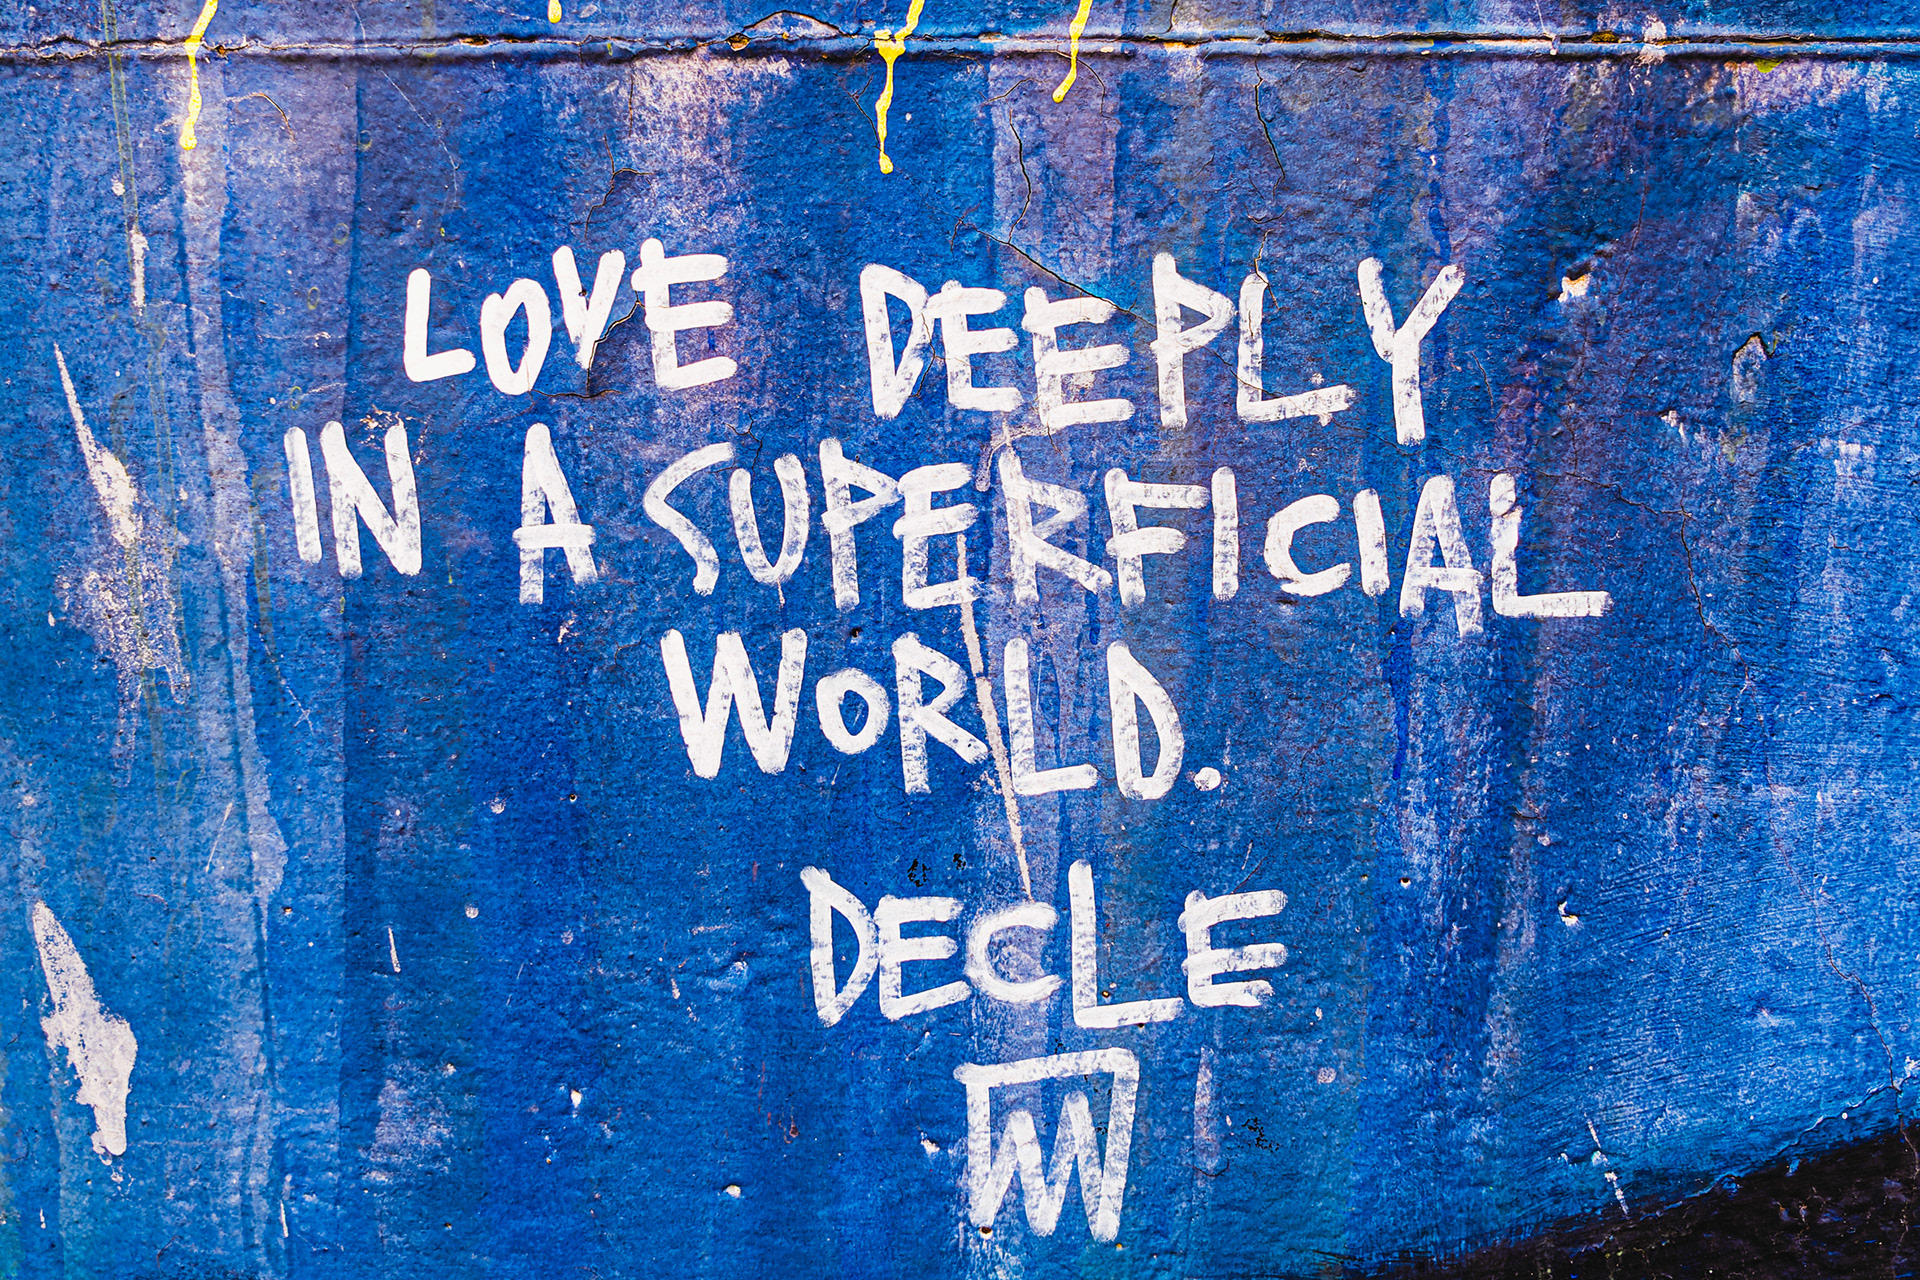 LOVE DEEPLY
IN A SUPERFICIAL
WORLD.
DECLE